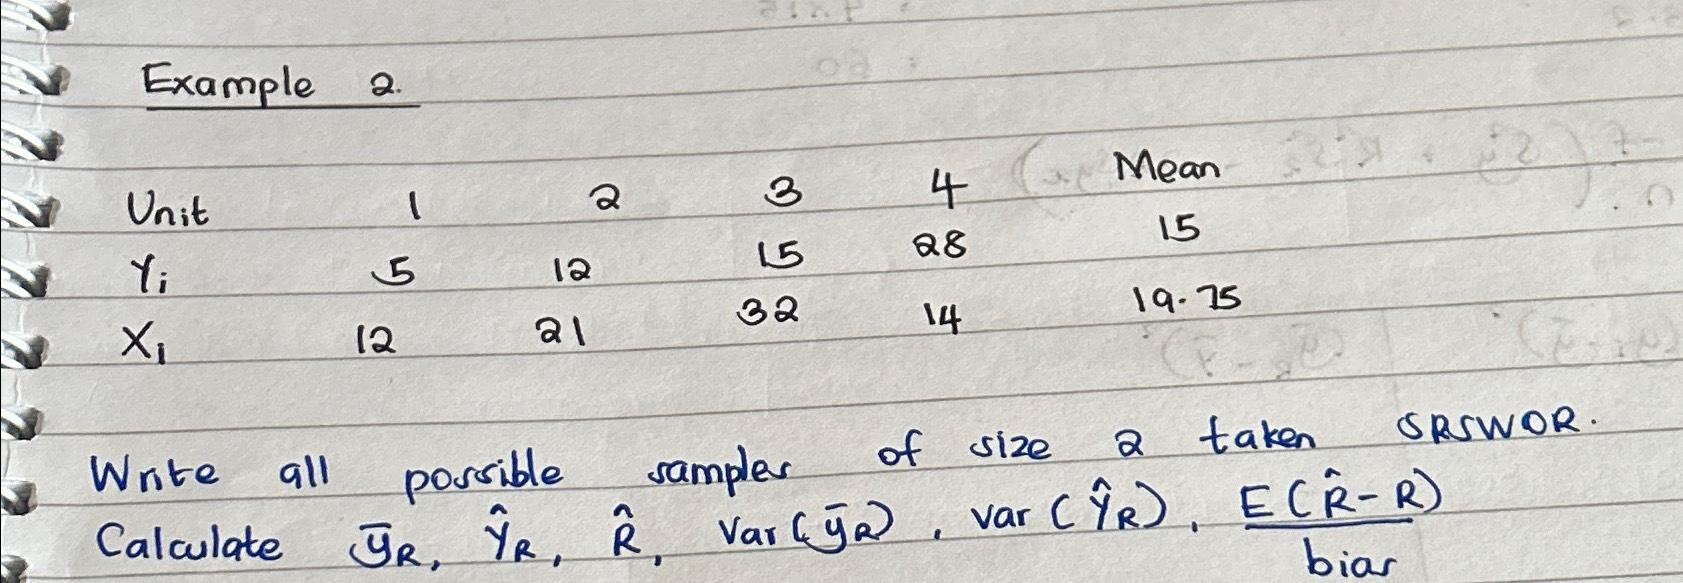 Example 2.
Unit 1 2 3 4 Mean
Yi 5 12 15 28 15
Xi 12 21 32 14 19.75
Write all possible samples of size 2 taken SRSWOR.
Calculate ȳR, ŶR, R̂, Var(ȳR), var(ŶR), E(R̂-R)
bias